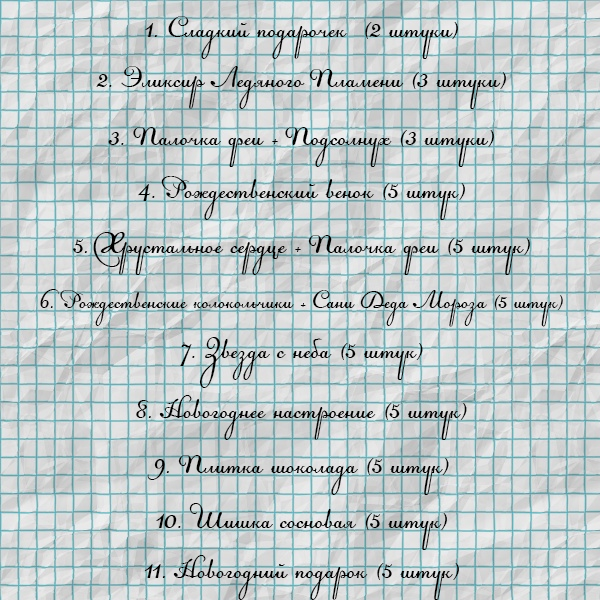 1. Сладкий подарочек (2 штуки)
2. Эликсир Ледяного Пламени (3 штуки)
3. Палочка феи + Подсолнух (3 штуки)
4. Рождественский венок (5 штук)
5. Хрустальное сердце + Палочка феи (5 штук)
6. Рождественские колокольчики + Сани Деда Мороза (5 штук)
7. Звезда с неба (5 штук)
8. Новогоднее настроение (5 штук)
9. Плитка шоколада (5 штук)
10. Шишка сосновая (5 штук)
11. Новогодний подарок (5 штук)